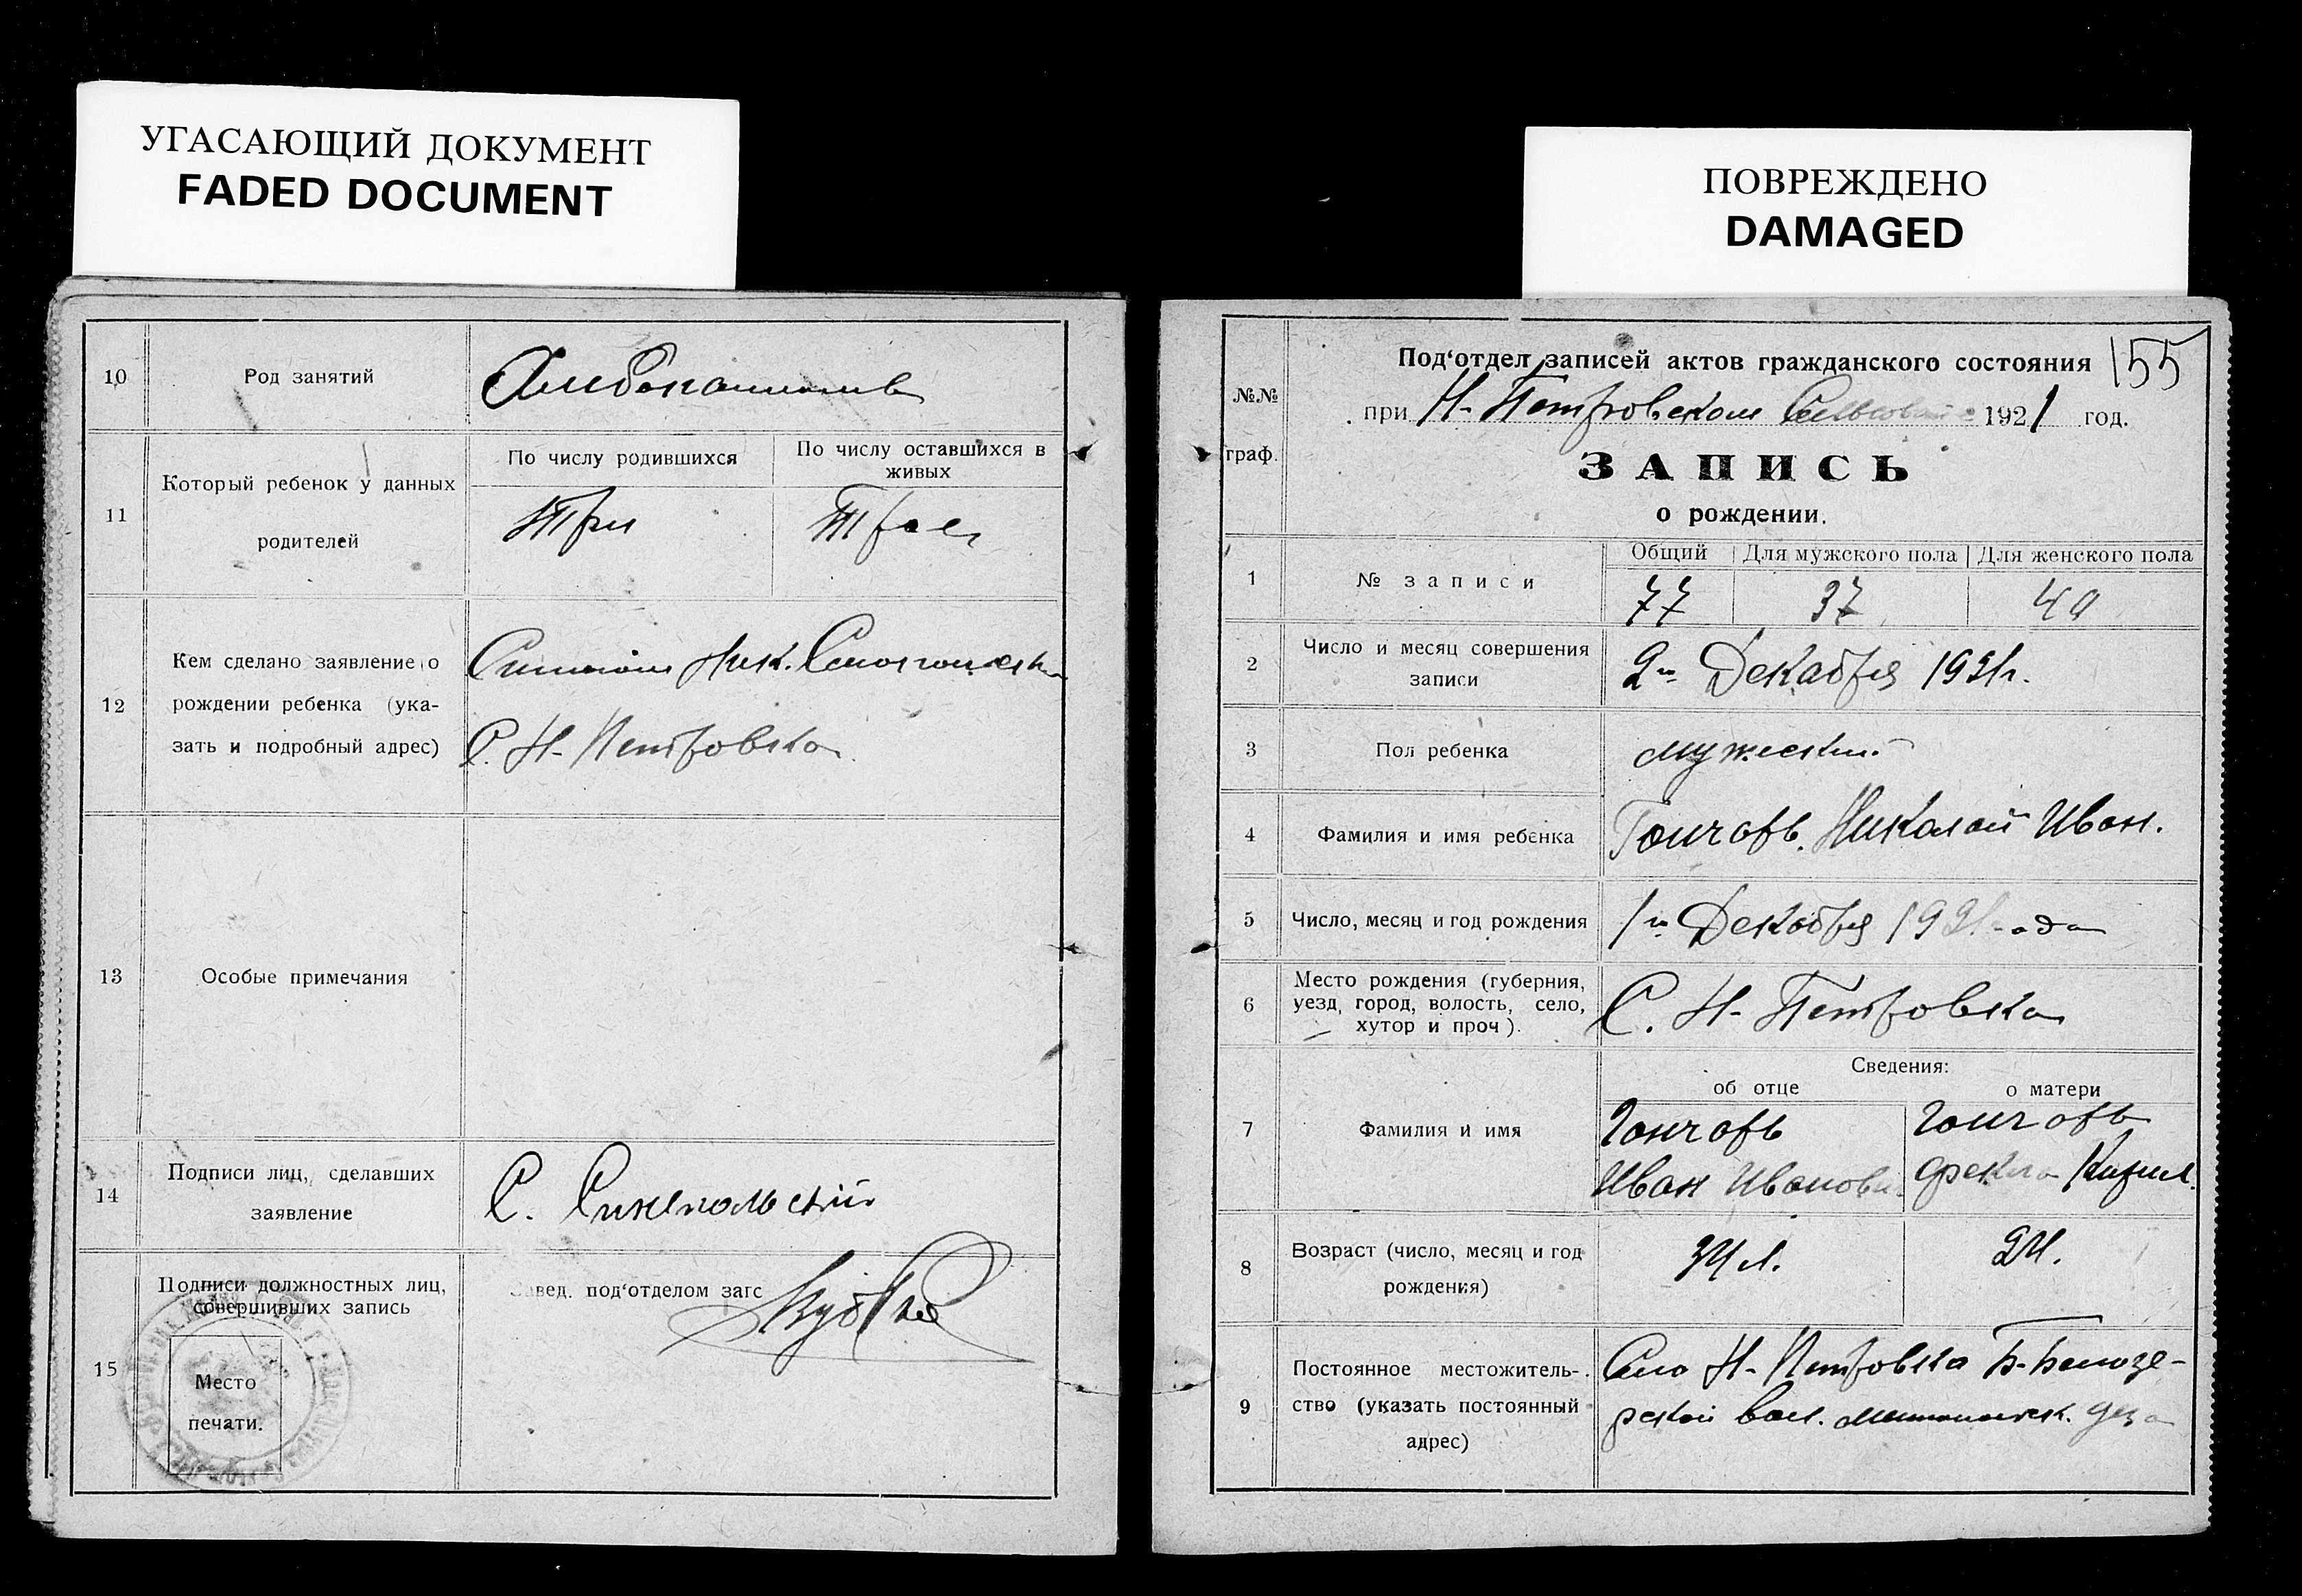 УГАСАЮЩИЙ ДОКУМЕНТ
FADED DOCUMENT
10
Род занятий
11
Который ребенок у данных
родителей
По числу родившихся
По числу оставшихся в
живых
Три
Трое
12
Кем сделано заявление о
рождении ребенка (ука-
зать и подробный адрес)
С. Н-Петровка
13
Особые примечания
14
Подписи лиц, сделавших
заявление
С.
15
Подписи должностных лиц,
совершивших запись
Место
печати.
Завед. под‘отделом загс
ПОВРЕЖДЕНО
DAMAGED
№№
граф.
Под‘отдел записей актов гражданского состояния
155
при Н-Петровском 1921 год.
ЗАПИСЬ
о рождении.
1
№ записи
Общий
Для мужского пола
Для женского пола
77
37
40
2
Число и месяц совершения
записи
2го Декабря 1921г.
3
Пол ребенка
мужеский
4
Фамилия и имя ребенка
Гончарь Николай Иван.
5
Число, месяц и год рождения
1го Декабря 1921 года
6
Место рождения (губерния,
уезд, город, волость, село,
хутор и проч).
С. Н-Петровка
7
Фамилия и имя
Сведения:
об отце
о матери
Гончарь
Иван Иванов
Гончарь
Фекла Кирил.
8
Возраст (число, месяц и год
рождения)
34 л.
24.
9
Постоянное местожитель-
ство (указать постоянный
адрес)
Село Н-Петровка Б-Белозе-
рской вол. уезда